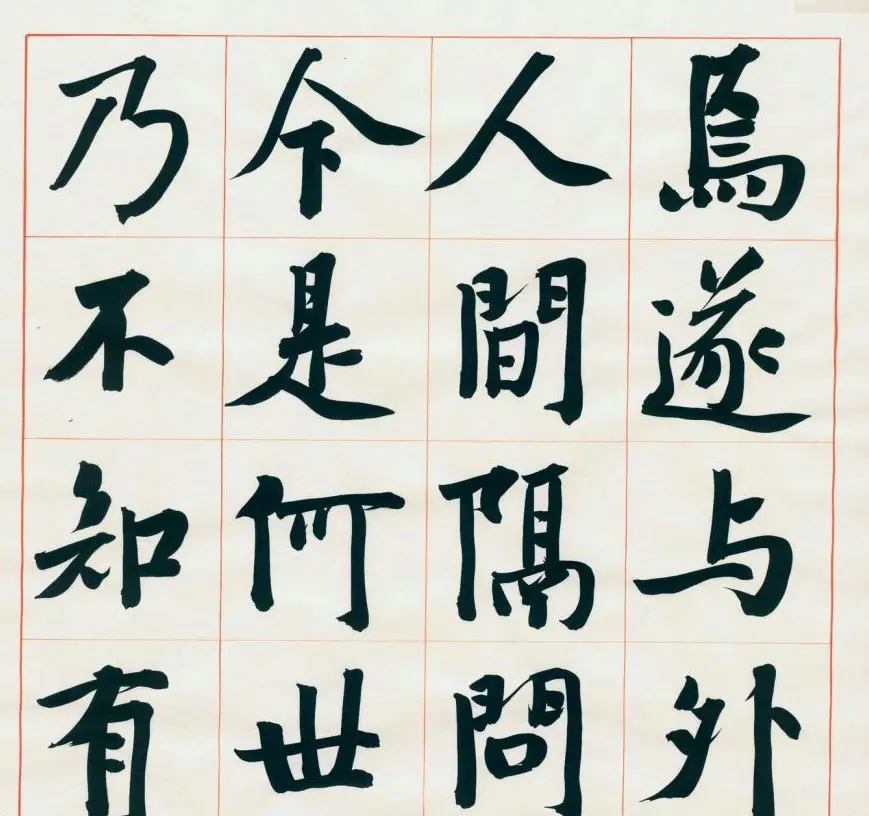 焉遂与外
人間隔問
今是何世
乃不知有